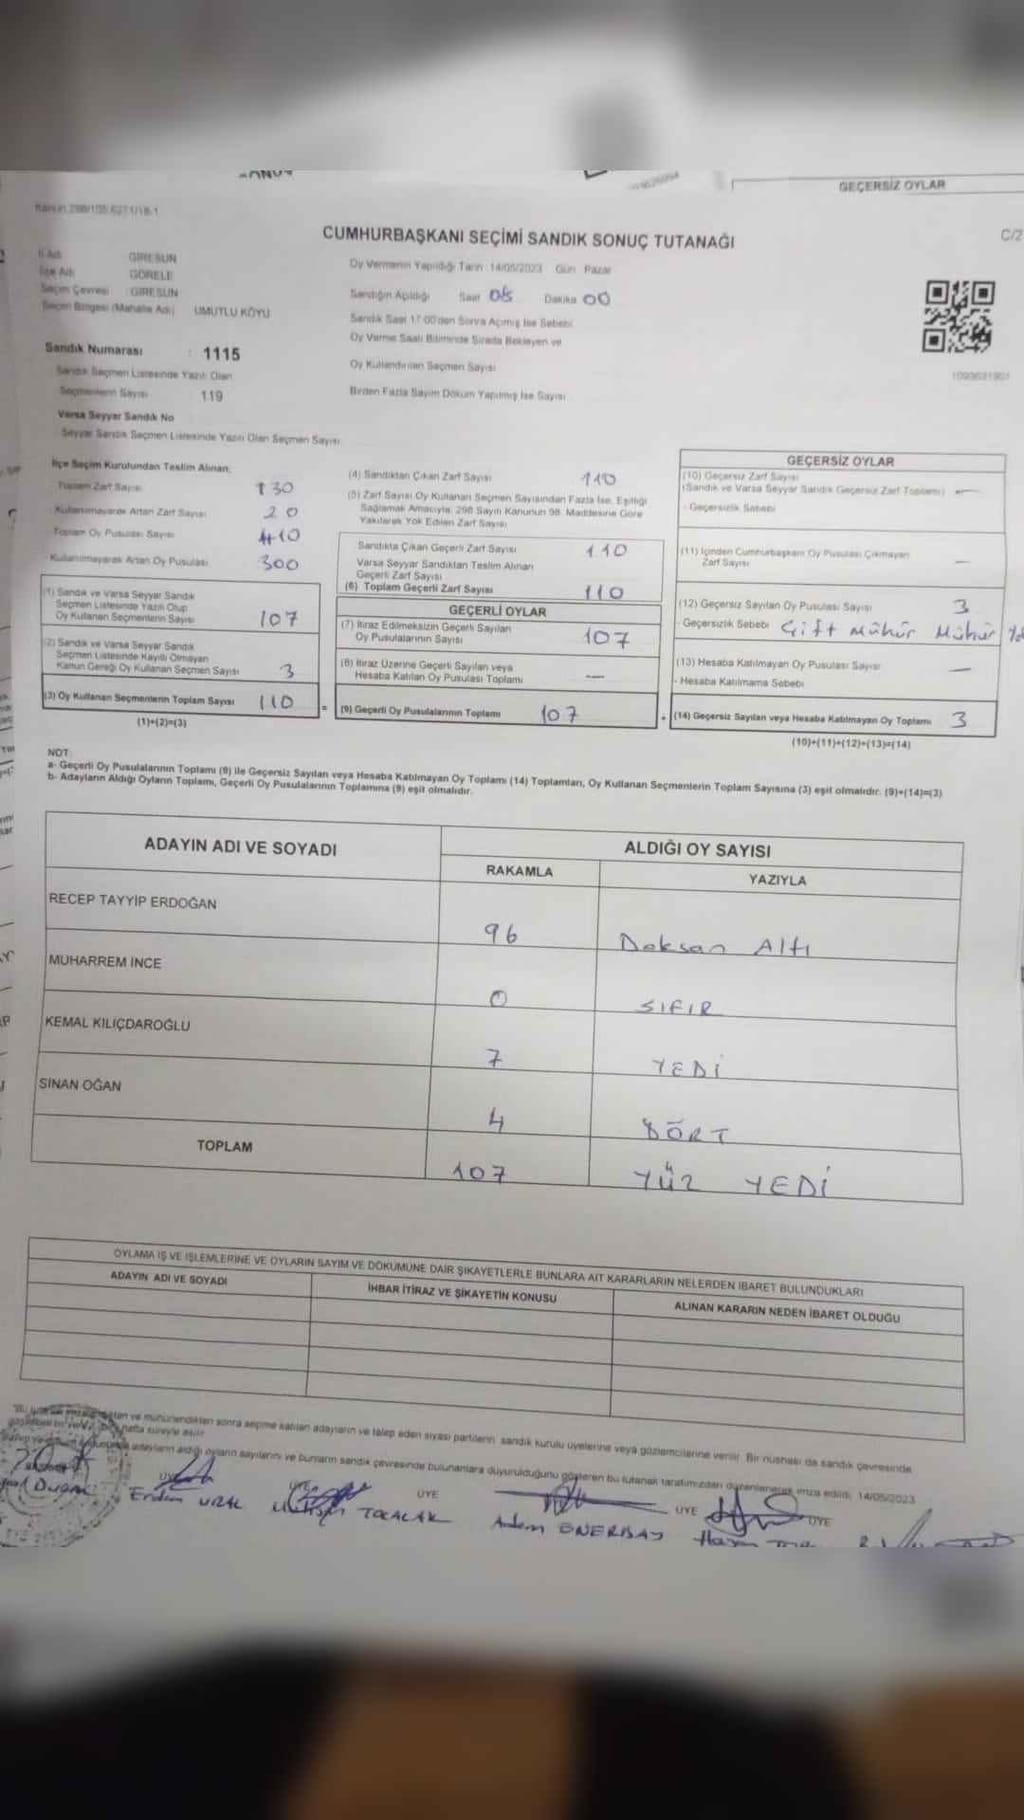 GEÇERSİZ OYLAR
CUMHURBAŞKANI SEÇİMİ SANDIK SONUÇ TUTANAĞI
C/2
İl Adı GİRESUN
İlçe Adı GÖRELE
Seçim Çevresi GİRESUN
Seçim Bölgesi (Mahalle Adı) UMUTLU KÖYÜ
Sandık Numarası : 1115
Sandık Seçmen Listesinde Yazılı Olan
Seçmenlerin Sayısı 119
Varsa Seyyar Sandık No
Seyyar Sandık Seçmen Listesinde Yazılı Olan Seçmen Sayısı
Oy Vermenin Yapıldığı Tarih 14/05/2023 Gün Pazar
Sandığın Açıldığı Saat 05 Dakika 00
Sandık Saat 17:00'den Sonra Açılmış İse Sebebi
Oy Verme Saati Bitiminde Sırada Bekleyen ve
Oy Kullandırılan Seçmen Sayısı
Birden Fazla Sayım Döküm Yapılmış İse Sayısı
İlçe Seçim Kurulundan Teslim Alınan,
Toplam Zarf Sayısı 130
Kullanılmayarak Artan Zarf Sayısı 20
Toplam Oy Pusulası Sayısı 410
Kullanılmayarak Artan Oy Pusulası 300
(1) Sandık ve Varsa Seyyar Sandık
Seçmen Listesinde Yazılı Olup
Oy Kullanan Seçmenlerin Sayısı 107
(2) Sandık ve Varsa Seyyar Sandık
Seçmen Listesinde Kayıtlı Olmayan
Kanun Gereği Oy Kullanan Seçmen Sayısı 3
(3) Oy Kullanan Seçmenlerin Toplam Sayısı 110
(1)+(2)=(3)
(4) Sandıktan Çıkan Zarf Sayısı 110
(5) Zarf Sayısı Oy Kullanan Seçmen Sayısından Fazla İse, Eşitliği
Sağlamak Amacıyla, 298 Sayılı Kanunun 98. Maddesine Göre
Yakılarak Yok Edilen Zarf Sayısı
Sandıkta Çıkan Geçerli Zarf Sayısı 110
Varsa Seyyar Sandıktan Teslim Alınan
Geçerli Zarf Sayısı
(6) Toplam Geçerli Zarf Sayısı 110
GEÇERLİ OYLAR
(7) İtiraz Edilmeksizin Geçerli Sayılan
Oy Pusulalarının Sayısı 107
(8) İtiraz Üzerine Geçerli Sayılan veya
Hesaba Katılan Oy Pusulası Toplamı —
= (9) Geçerli Oy Pusulalarının Toplamı 107
GEÇERSİZ OYLAR
(10) Geçersiz Zarf Sayısı
(Sandık ve Varsa Seyyar Sandık Geçersiz Zarf Toplamı) —
- Geçersizlik Sebebi
(11) İçinden Cumhurbaşkanı Oy Pusulası Çıkmayan
Zarf Sayısı —
(12) Geçersiz Sayılan Oy Pusulası Sayısı 3
- Geçersizlik Sebebi Çift mühür Mühür
(13) Hesaba Katılmayan Oy Pusulası Sayısı —
- Hesaba Katılmama Sebebi
+ (14) Geçersiz Sayılan veya Hesaba Katılmayan Oy Toplamı 3
(10)+(11)+(12)+(13)=(14)
NOT:
a- Geçerli Oy Pusulalarının Toplamı (9) ile Geçersiz Sayılan veya Hesaba Katılmayan Oy Toplamı (14) Toplamları, Oy Kullanan Seçmenlerin Toplam Sayısına (3) eşit olmalıdır. (9)+(14)=(3)
b- Adayların Aldığı Oyların Toplamı, Geçerli Oy Pusulalarının Toplamına (9) eşit olmalıdır.
ADAYIN ADI VE SOYADI ALDIĞI OY SAYISI
RAKAMLA YAZIYLA
RECEP TAYYİP ERDOĞAN 96 Doksan Altı
MUHARREM İNCE 0 SIFIR
KEMAL KILIÇDAROĞLU 7 YEDİ
SİNAN OĞAN 4 DÖRT
TOPLAM 107 YÜZ YEDİ
OYLAMA İŞ VE İŞLEMLERİNE VE OYLARIN SAYIM VE DÖKÜMÜNE DAİR ŞİKAYETLERLE BUNLARA AİT KARARLARIN NELERDEN İBARET BULUNDUKLARI
ADAYIN ADI VE SOYADI İHBAR İTİRAZ VE ŞİKAYETİN KONUSU ALINAN KARARIN NEDEN İBARET OLDUĞU
ve mühürlendikten sonra seçime katılan adayların ve talep eden siyasi partilerin sandık kurulu üyelerine veya gözlemcilerine verilir. Bir nüshası da sandık çevresinde
hafta süreyle asılır
adayların aldığı oyların sayılarını ve bunların sandık çevresinde bulunanlara duyurulduğunu gösteren bu tutanak tarafımızdan düzenlenerek imza edildi. 14/05/2023
ÜYE ÜYE ÜYE ÜYE
Erdem URAL TOCALAK Adem ENERBAY